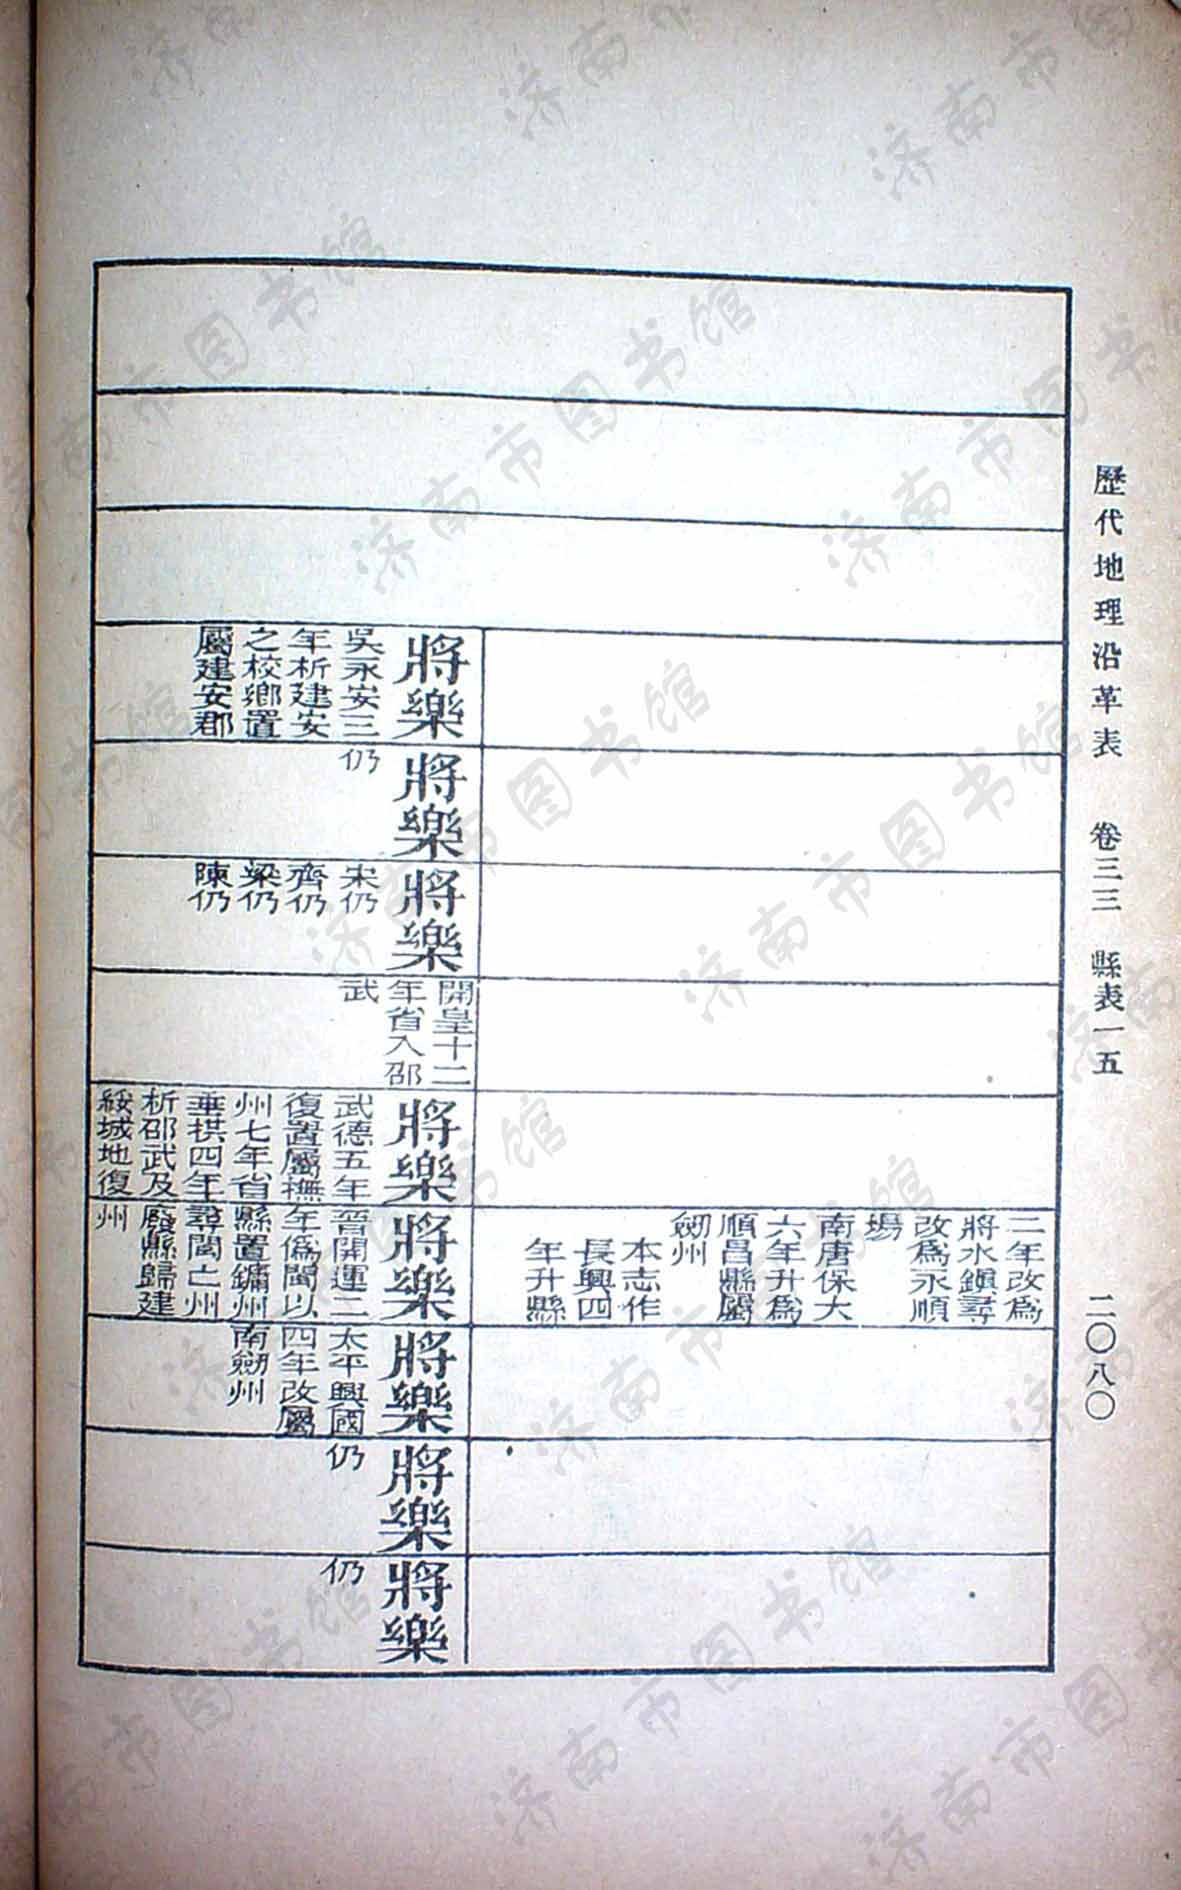 歷代地理沿革表 卷三三 縣表一五 二〇八〇
二年改爲
將水鎭尋
改爲永順
場
南唐保大
六年升爲
順昌縣屬
劒州
本志作
長興四
年升縣
將樂
吳永安三
年析建安
之校鄉置
屬建安郡
將樂
仍
將樂
宋仍
齊仍
梁仍
陳仍
開皇十二
年省入邵
武
將樂
武德五年
復置屬撫
州七年省
垂拱四年
析邵武及
綏城地復
將樂
晉開運二
年僞閩以
縣置鏞州
尋閩亡州
廢縣歸建
州
將樂
太平興國
四年改屬
南劒州
將樂
仍
將樂
仍
济南市图书馆